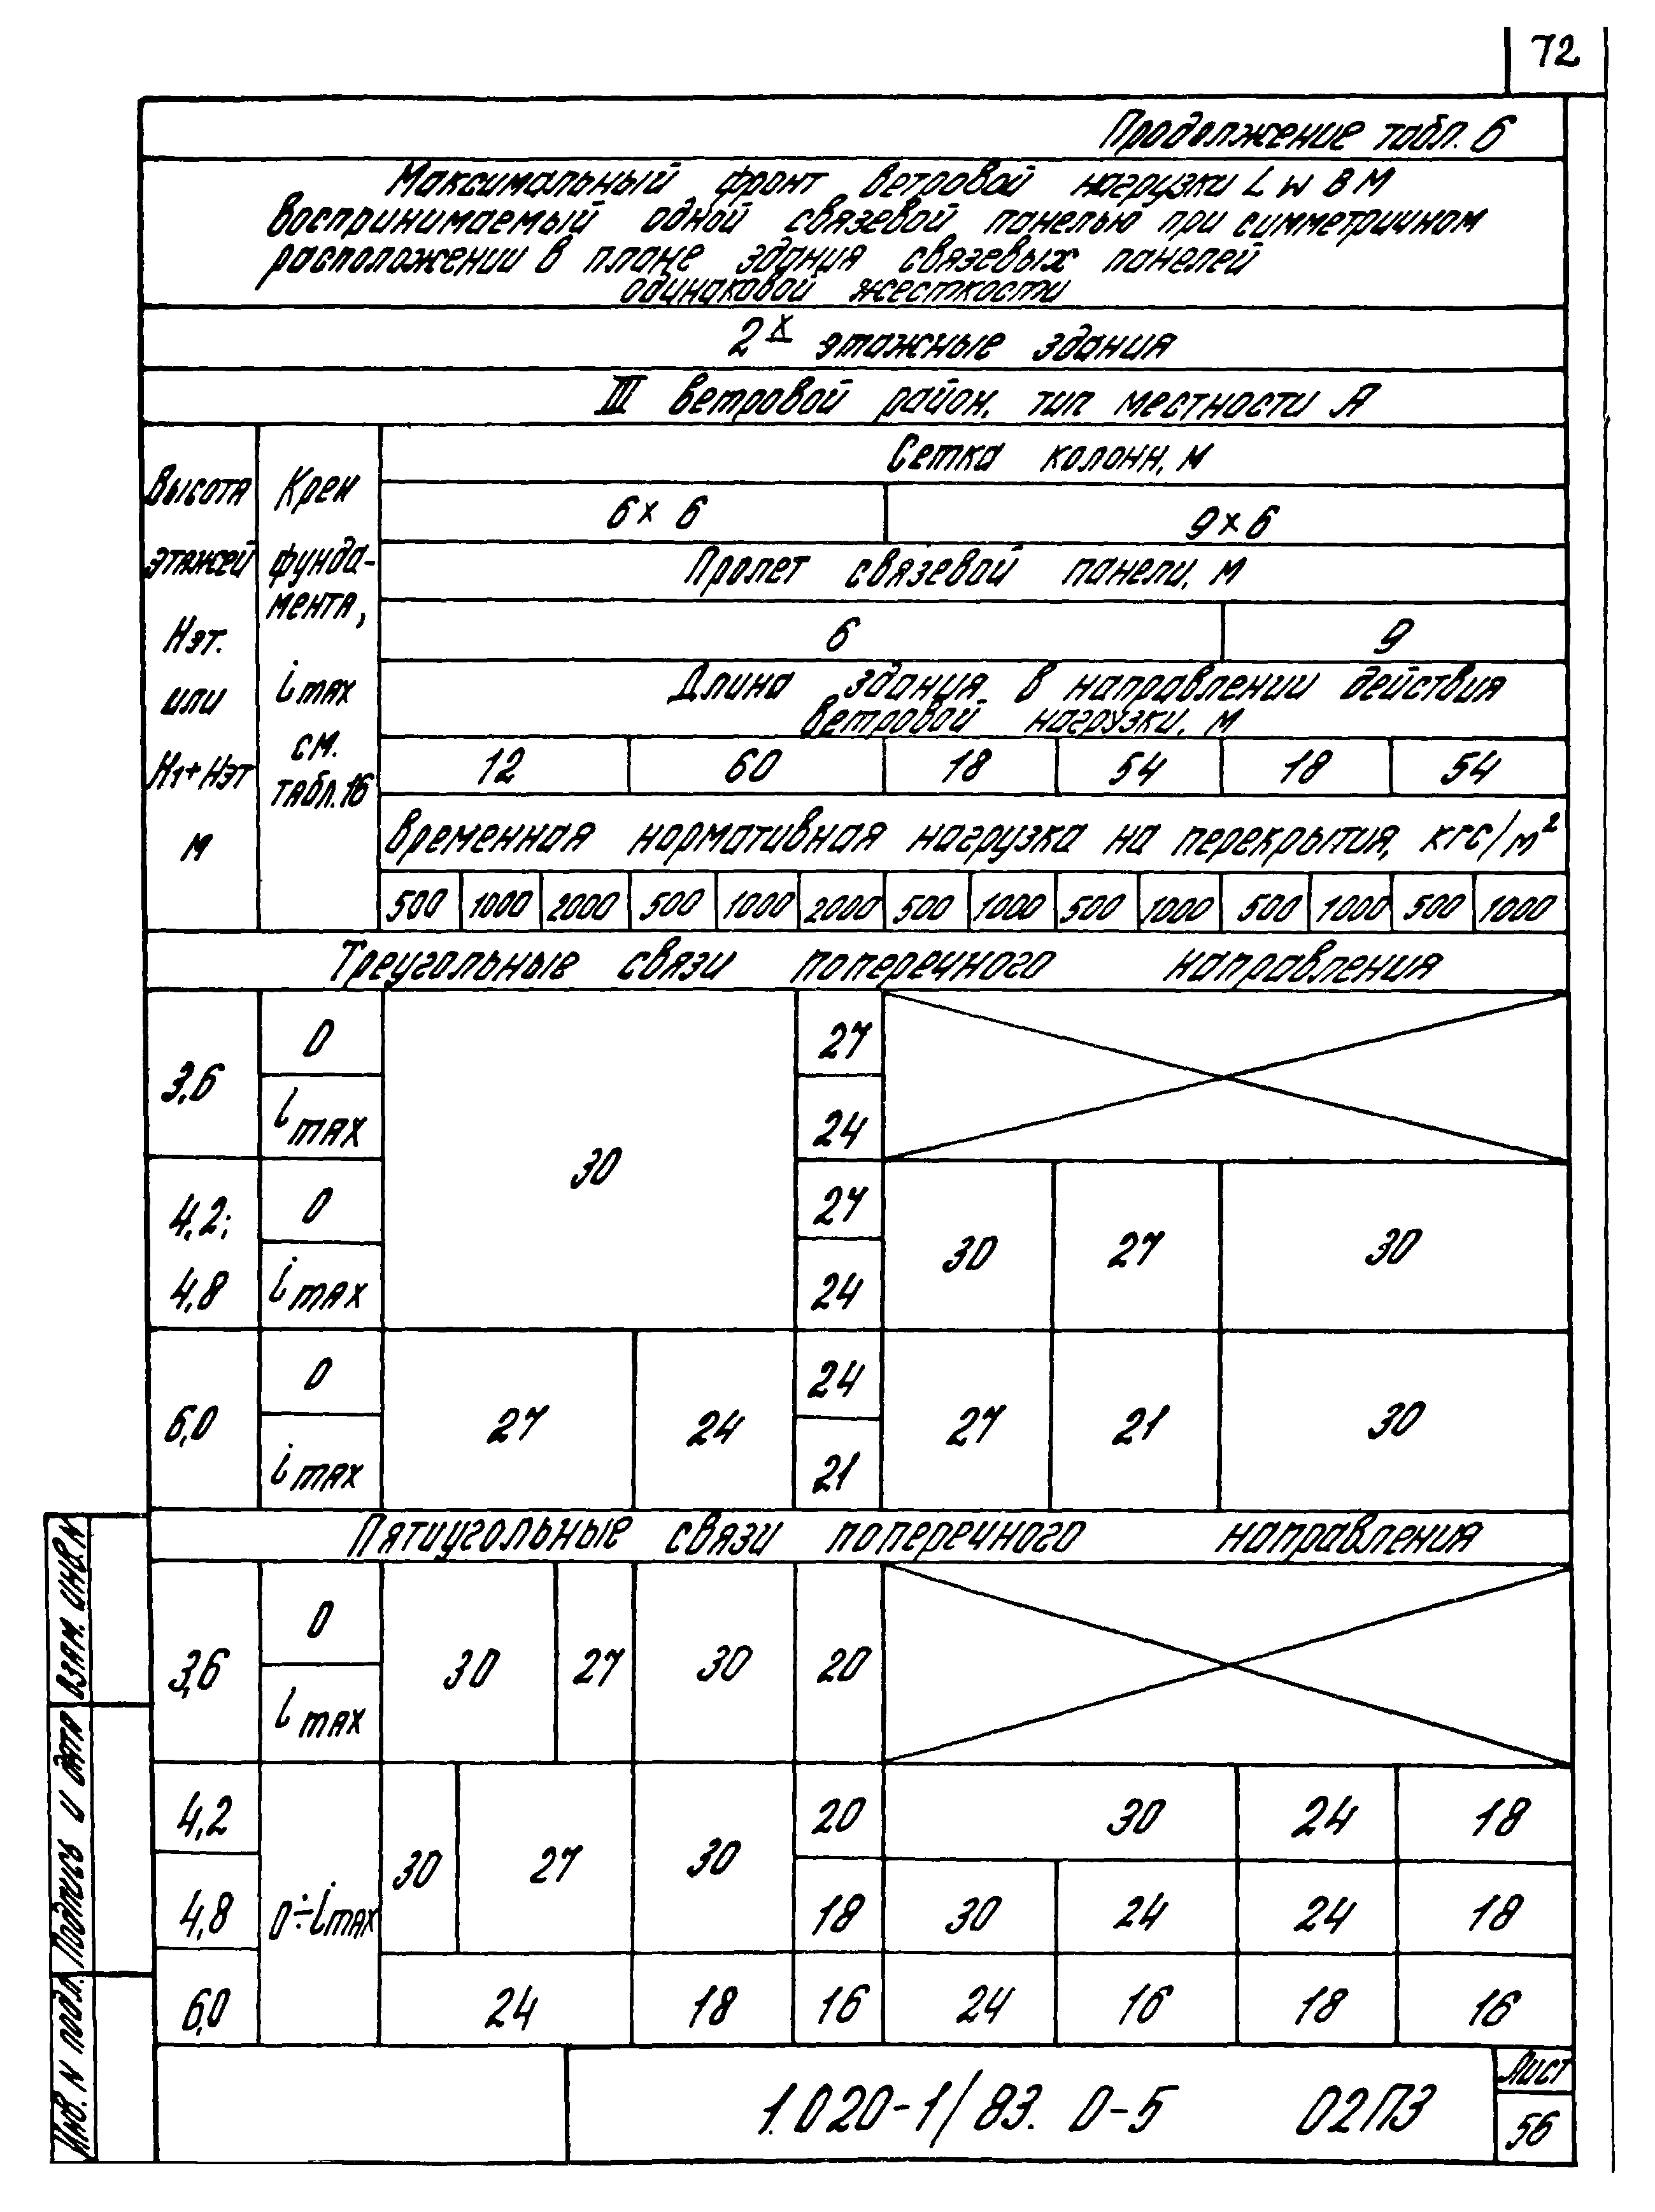 72
Продолжение табл. 6
Максимальный фронт ветровой нагрузки L w в м
воспринимаемый одной связевой панелью при симметричном
расположении в плане здания связевых панелей
одинаковой жесткости
2х этажные здания
III ветровой район, тип местности А
Высота этажей Нэт. или Н1+Нэт м
Крен фунда-мента, imax см. табл.16
Сетка колонн, м
6×6 9×6
Пролет связевой панели, м
6 9
Длина здания в направлении действия
ветровой нагрузки, м
12 60 18 54 18 54
Временная нормативная нагрузка на перекрытия, кгс/м²
500 1000 2000 500 1000 2000 500 1000 500 1000 500 1000 500 1000
Треугольные связи поперечного направления
3,6 0 30 27
imax 24
4,2; 0 27
4,8 imax 24 30 27 30
6,0 0 27 24 24 27 21 30
imax 21
Пятиугольные связи поперечного направления
3,6 0 30 27 30 20
imax
4,2 0÷imax 30 27 30 20 30 24 18
4,8 18 30 24 24 18
6,0 24 18 16 24 16 18 16
1.020-1/83. 0-5 02ПЗ
Лист
56
Взам. инв. N
Подпись и дата
Инв. N подл.